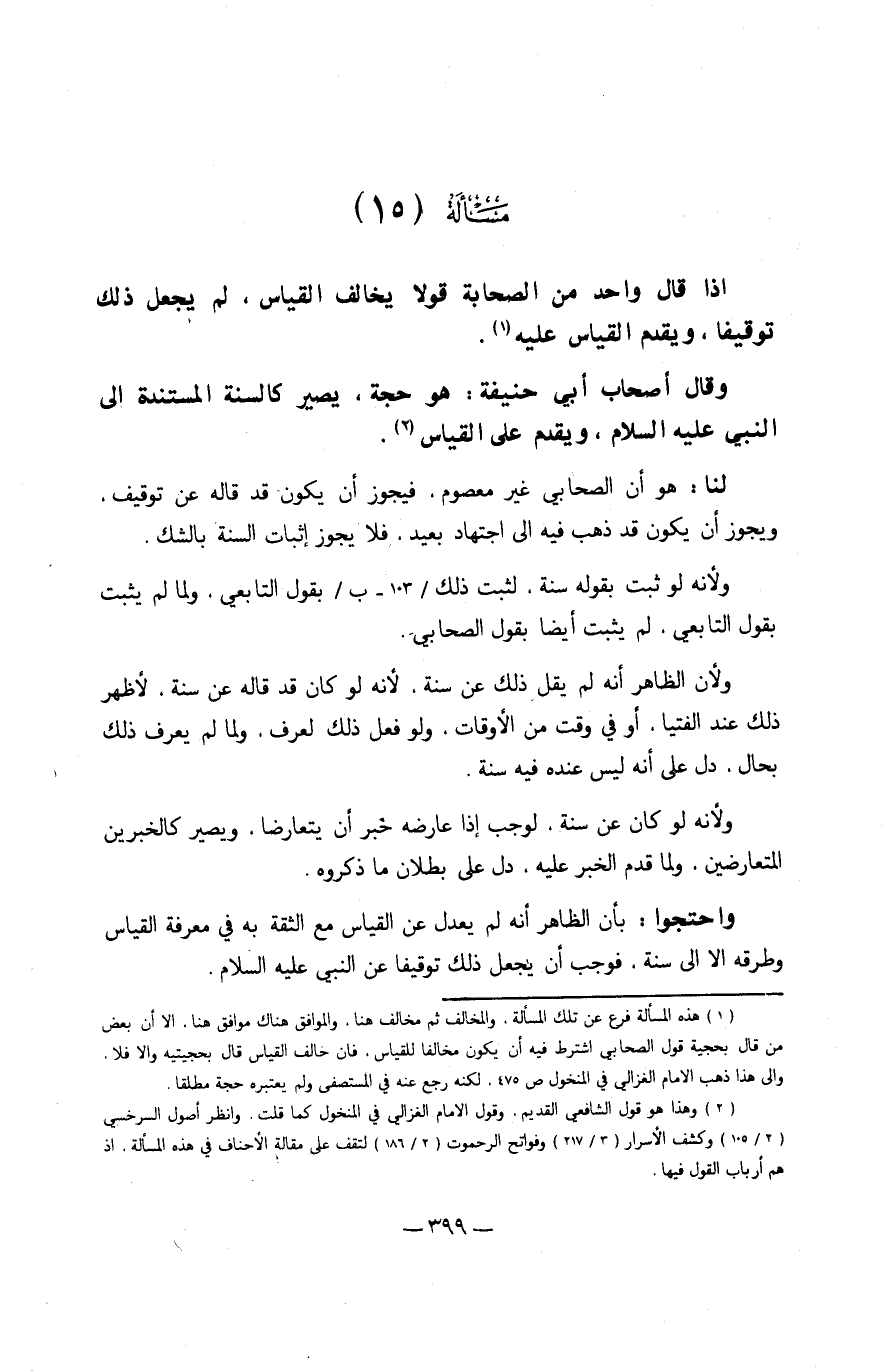 مسألة (١٥)
اذا قال واحد من الصحابة قولا يخالف القياس ، لم يجعل ذلك
توقيفا ، ويقدم القياس عليه(١) .
وقال أصحاب أبي حنيفة : هو حجة ، يصير كالسنة المستندة الى
النبي عليه السلام ، ويقدم على القياس(٢) .
لنا : هو أن الصحابي غير معصوم ، فيجوز أن يكون قد قاله عن توقيف ،
ويجوز أن يكون قد ذهب فيه الى اجتهاد بعيد ، فلا يجوز إثبات السنة بالشك .
ولأنه لو ثبت بقوله سنة ، لثبت ذلك / ١٠٣ ـ ب / بقول التابعي ، ولما لم يثبت
بقول التابعي ، لم يثبت أيضا بقول الصحابي .
ولأن الظاهر أنه لم يقل ذلك عن سنة ، لأنه لو كان قد قاله عن سنة ، لأظهر
ذلك عند الفتيا ، أو في وقت من الأوقات ، ولو فعل ذلك لعرف ، ولما لم يعرف ذلك
بحال ، دل على أنه ليس عنده فيه سنة .
ولأنه لو كان عن سنة ، لوجب إذا عارضه خبر أن يتعارضا ، ويصير كالخبرين
المتعارضين ، ولما قدم الخبر عليه ، دل على بطلان ما ذكروه .
واحتجوا : بأن الظاهر أنه لم يعدل عن القياس مع الثقة به في معرفة القياس
وطرقه الا الى سنة ، فوجب أن يجعل ذلك توقيفا عن النبي عليه السلام .
( ١ ) هذه المسألة فرع عن تلك المسألة ، والمخالف ثم مخالف هنا ، والموافق هناك موافق هنا ، الا أن بعض
من قال بحجية قول الصحابي اشترط فيه أن يكون مخالفا للقياس ، فان خالف القياس قال بحجيتيه والا فلا ،
والى هذا ذهب الامام الغزالي في المنخول ص ٤٧٥ ، لكنه رجع عنه في المستصفى ولم يعتبره حجة مطلقا .
( ٢ ) وهذا هو قول الشافعي القديم ، وقول الامام الغزالي في المنخول كما قلت . وانظر أصول السرخسي
( ٢ / ١٠٥ ) وكشف الأسرار ( ٣ / ٢١٧ ) وفواتح الرحموت ( ٢ / ١٨٦ ) لتقف على مقالة الأحناف في هذه المسألة ، اذ
هم أرباب القول فيها .
— ٣٩٩ —